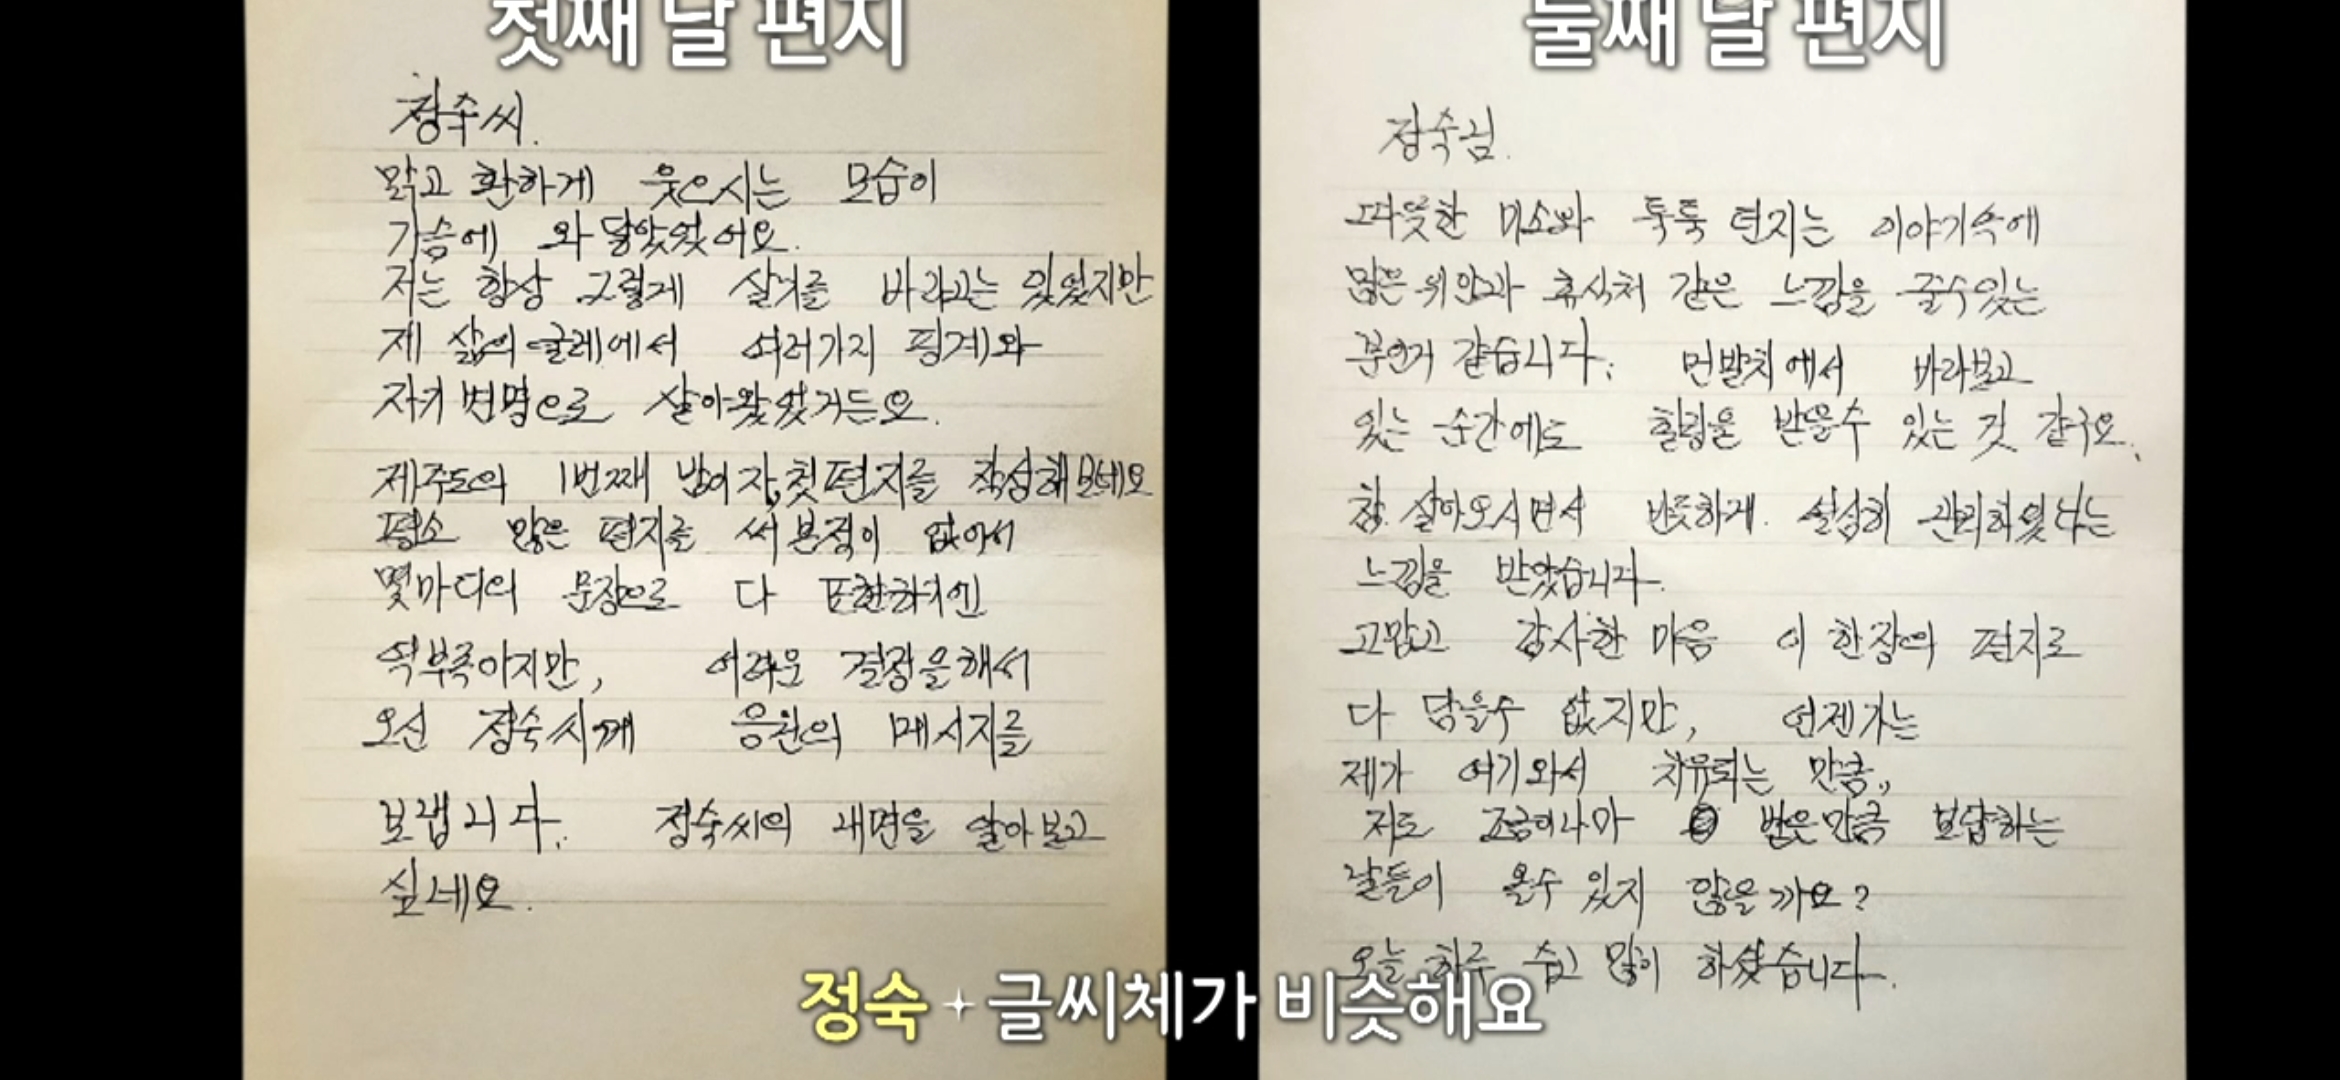 첫째 달 편지
정숙씨.
맑고 환하게 웃으시는 모습이
가슴에 와 닿았었어요.
저는 항상 그렇게 살기를 바라고는 있었지만
제 삶의 굴레에서 여러가지 핑계와
자기 변명으로 살아왔었거든요.
제주도의 1번째 밤이자, 첫편지를 작성해보네요
평소 많은 편지를 써본적이 없어서
몇마디의 문장으로 다 표현하기엔
역부족이지만, 어려운 결정을해서
오신 정숙씨께 응원의 메시지를
보냅니다. 정숙씨의 내면을 알아보고
싶네요.
둘째 달 편지
정숙님.
따뜻한 미소와 툭툭 던지는 이야기속에
많은 위안과 휴식처 같은 느낌을 줄수있는
분인거 같습니다. 먼발치에서 바라보고
있는 순간에도 힐링을 받을수 있는 것 같구요.
참 살아오시면서 반듯하게 성실히 관리하였다는
느낌을 받았습니다.
고맙고 감사한 마음 이 한장의 편지로
다 담을수 없지만, 언젠가는
제가 여기와서 치유되는 만큼,
저도 조금이나마 받은만큼 보답하는
날들이 올수 있지 않을까요?
오늘 하루 수고 많이 하셨습니다.
정숙 글씨체가 비슷해요